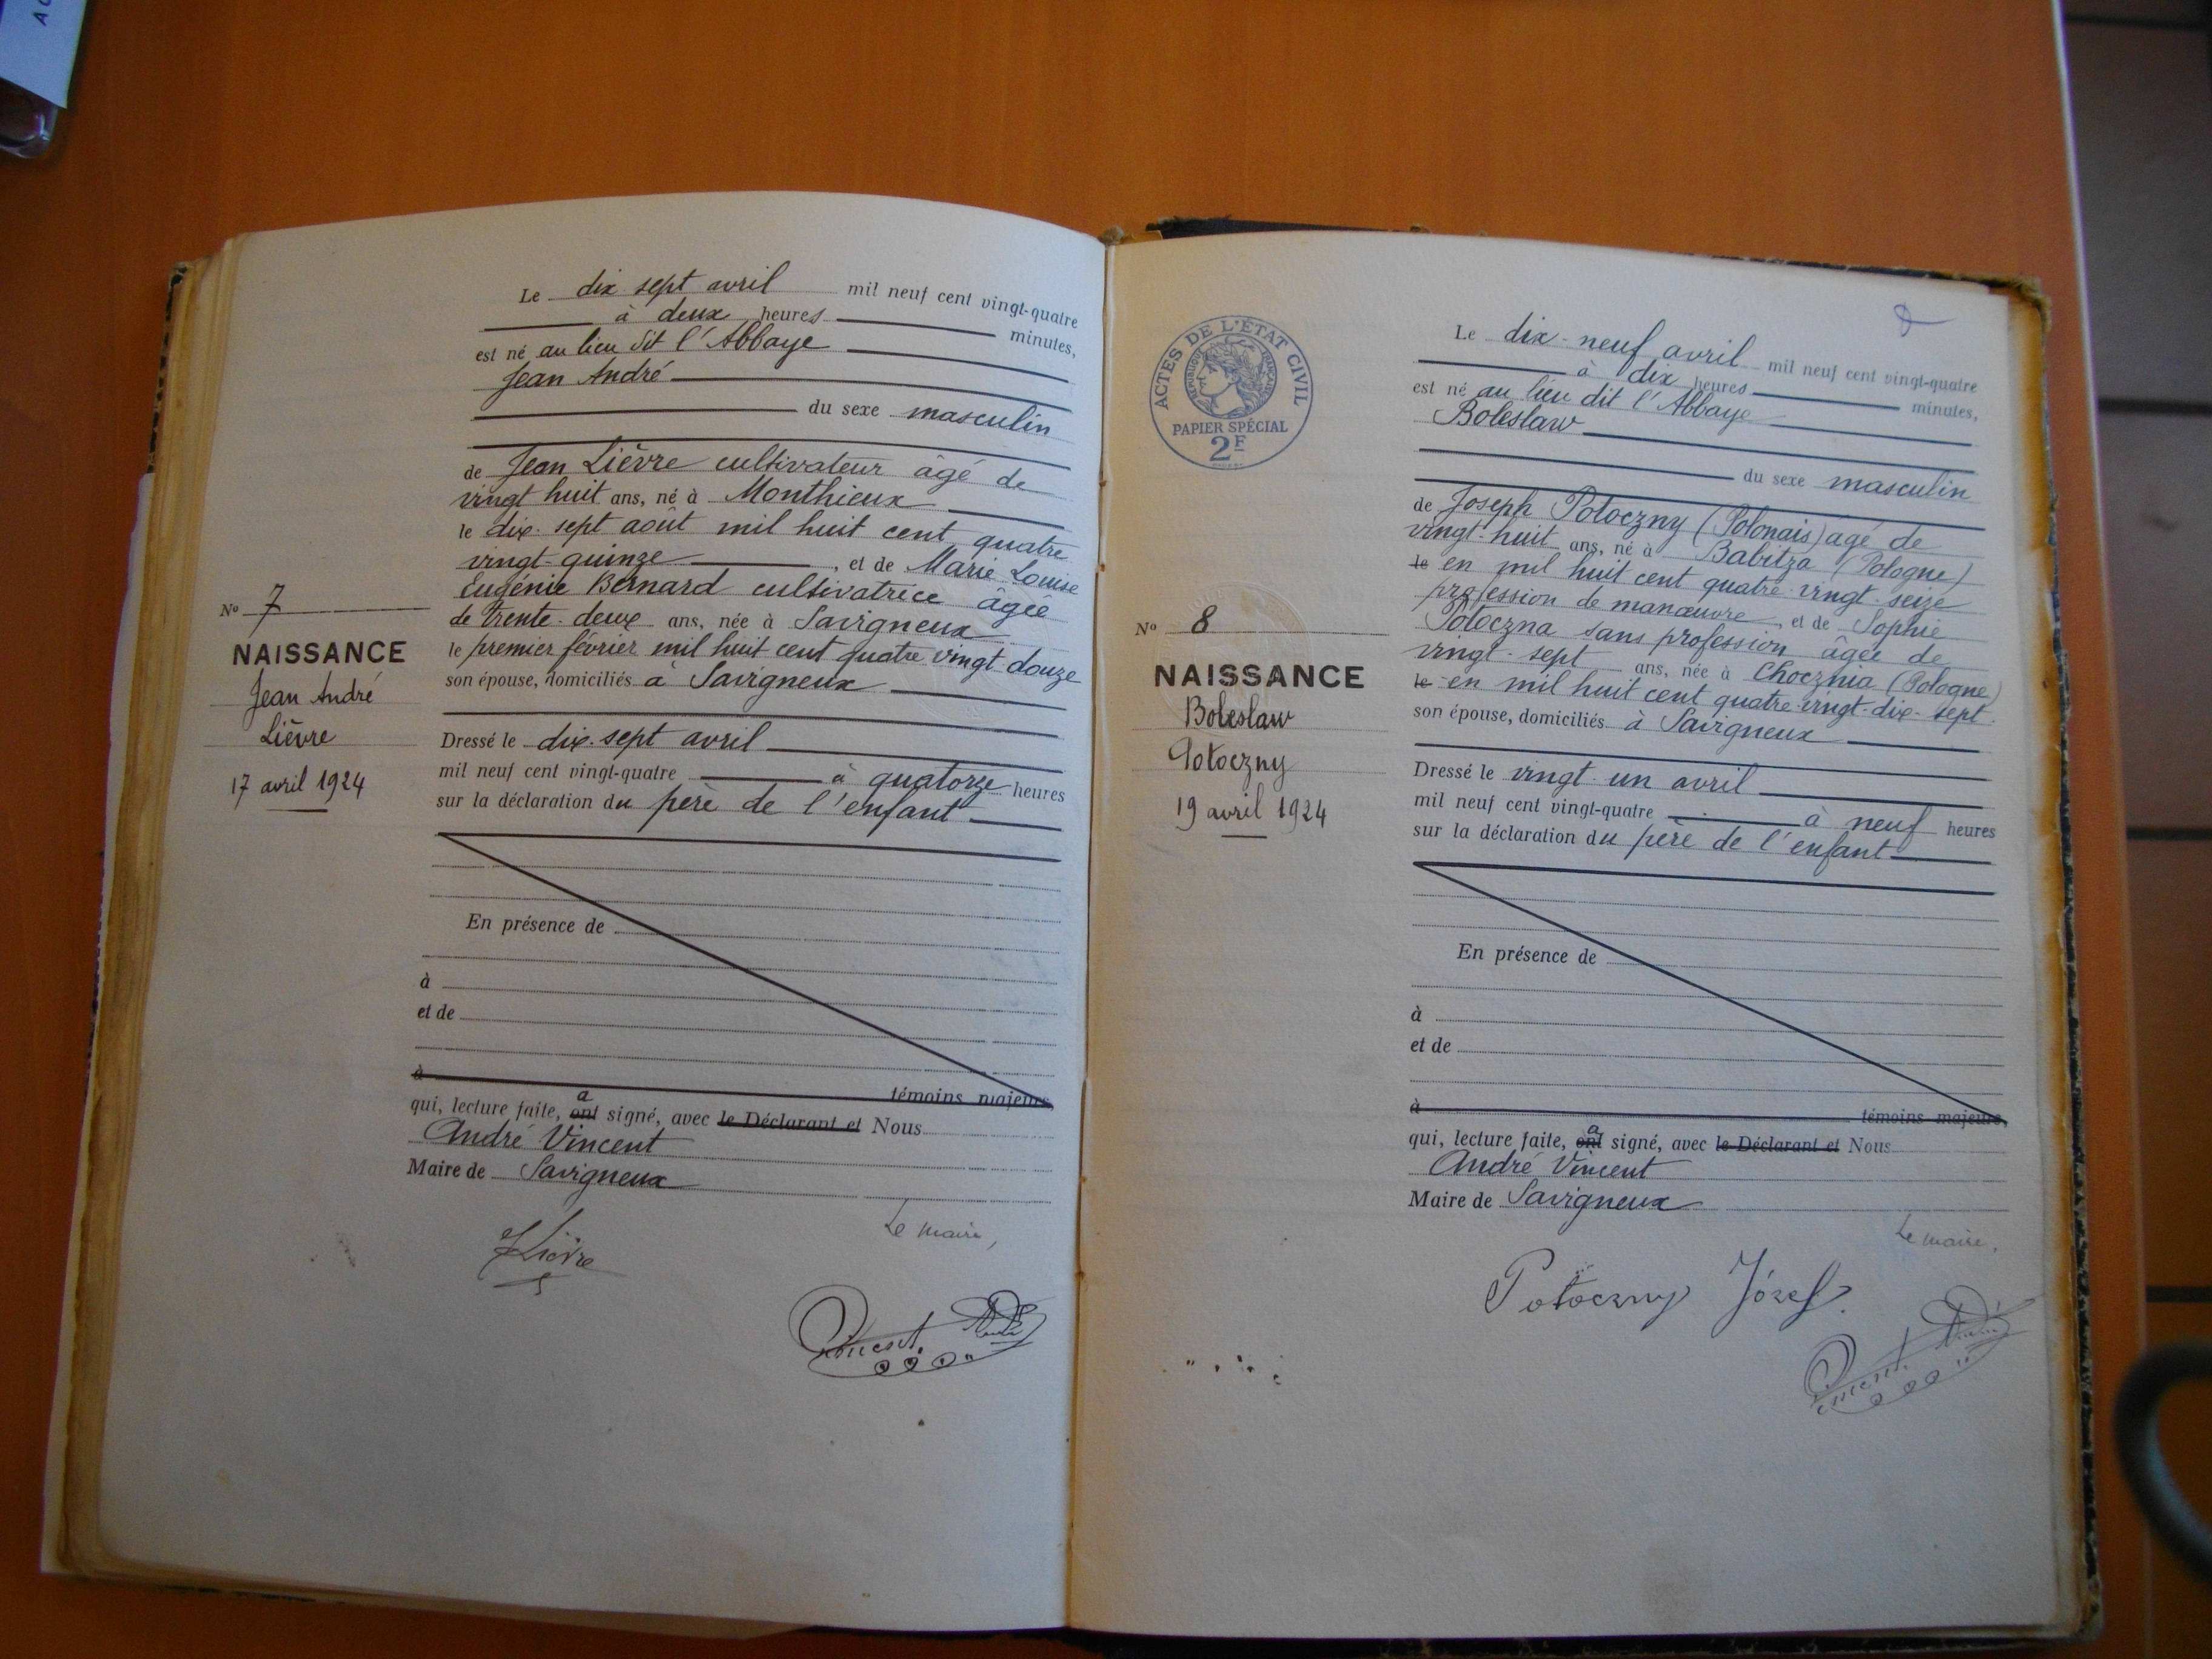 Le dix sept avril mil neuf cent vingt-quatre
à deux heures minutes,
est né au lieu dit l'Abbaye
Jean André
du sexe masculin
de Jean Lièvre cultivateur âgé de
vingt huit ans, né à Monthieux
le dix-sept août mil huit cent quatre
vingt-quinze, et de Marie Louise
Eugénie Bernard cultivatrice âgée
de trente-deux ans, née à Savigneux
le premier février mil huit cent quatre vingt douze
son épouse, domiciliés à Savigneux
Dressé le dix-sept avril
mil neuf cent vingt-quatre à quatorze heures
sur la déclaration du père de l'enfant
En présence de
à
et de
à témoins majeurs,
qui, lecture faite, ont a signé, avec le Déclarant et Nous
André Vincent
Maire de Savigneux
Le maire,
JLièvre
Vincent André
No 7
NAISSANCE
Jean André
Lièvre
17 avril 1924
ACTES DE L'ÉTAT CIVIL
RÉPUBLIQUE FRANÇAISE
PAPIER SPÉCIAL
2F
Le dix-neuf avril mil neuf cent vingt-quatre
à dix heures minutes,
est né au lieu dit l'Abbaye
Boleslaw
du sexe masculin
de Joseph Potoczny (Polonais) agé de
vingt-huit ans, né à Babitza (Pologne)
le en mil huit cent quatre-vingt-seize
profession de manœuvre, et de Sophie
Potoczna sans profession âgée de
vingt-sept ans, née à Chocznia (Pologne)
le en mil huit cent quatre-vingt-dix-sept
son épouse, domiciliés à Savigneux
Dressé le vingt-un avril
mil neuf cent vingt-quatre à neuf heures
sur la déclaration du père de l'enfant
En présence de
à
et de
à témoins majeurs,
qui, lecture faite, ont a signé, avec le Déclarant et Nous
André Vincent
Maire de Savigneux
Le maire,
Potoczny Józef.
Vincent André
No 8
NAISSANCE
Boleslaw
Potoczny
19 avril 1924